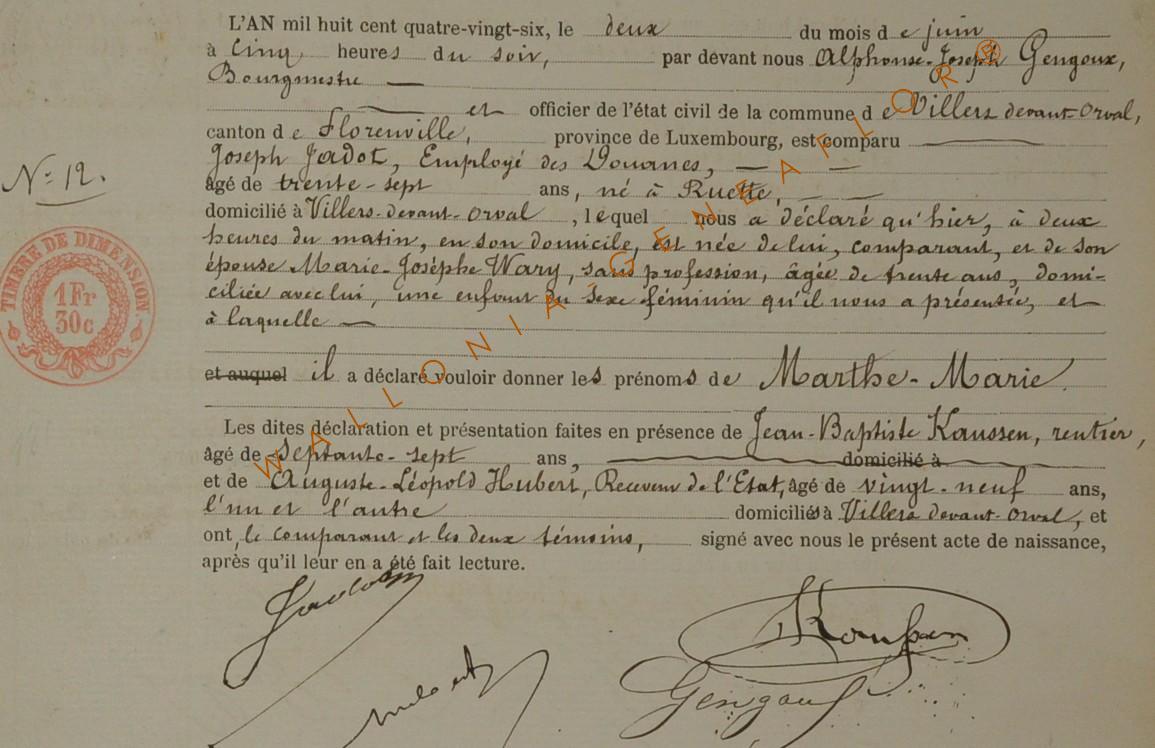 L'AN mil huit cent quatre-vingt-six, le deux du mois de juin
à cinq heures du soir, par devant nous Alphonse-Joseph Gengoux,
Bourgmestre
et officier de l'état civil de la commune de Villers devant-Orval,
canton de Florenville, province de Luxembourg, est comparu
Joseph Jadot, Employé des Douanes,
N° 12.
âgé de trente-sept ans, né à Ruette,
domicilié à Villers-devant-Orval, lequel nous a déclaré qu'hier, à deux
heures du matin, en son domicile, est née de lui, comparant, et de son
épouse Marie-Josèphe Wary, sans profession, âgée de trente ans, domi-
ciliée avec lui, une enfant du sexe féminin qu'il nous a présentée, et
à laquelle
TIMBRE DE DIMENSION.
1 Fr
30c
et auquel il a déclaré vouloir donner les prénoms de Marthe-Marie.
Les dites déclaration et présentation faites en présence de Jean-Baptiste Kaussen, rentier,
âgé de septante-sept ans, domicilié à
et de Auguste-Léopold Hubert, Receveur de l'Etat, âgé de vingt-neuf ans,
l'un et l'autre domiciliés à Villers devant-Orval, et
ont, le comparant et les deux témoins, signé avec nous le présent acte de naissance,
après qu'il leur en a été fait lecture.
Kaussen
Gengoux
WALLONIA-GENEAFLOR®